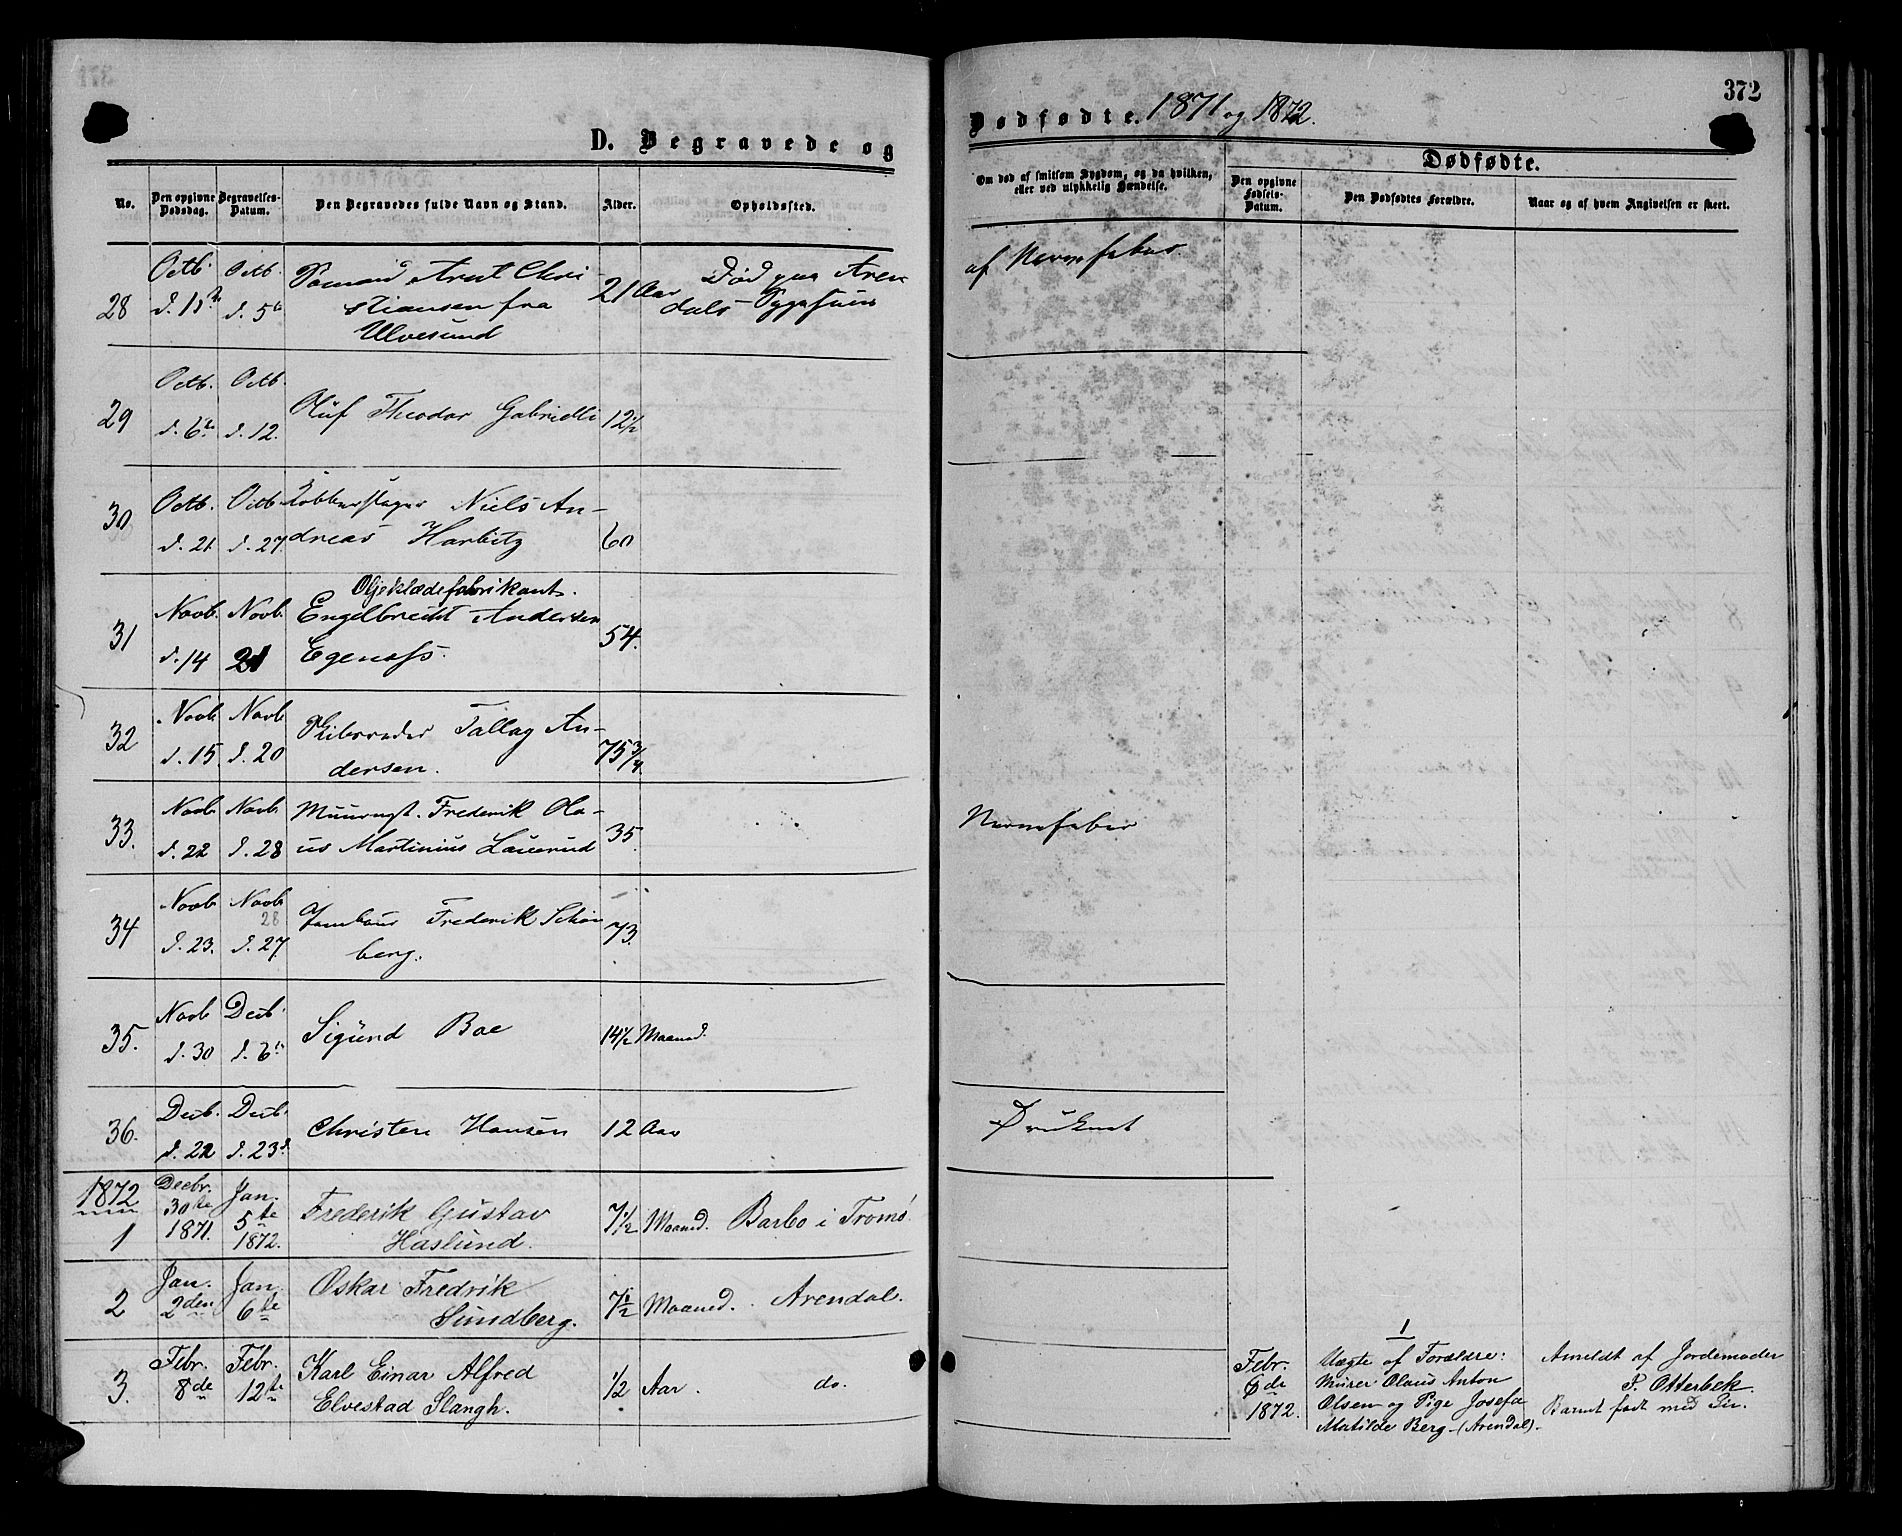 372
D. Begravede og
Dødfødte. 1871 og 1872.
No.
Den opgivne Dødsdag.
Begravelses-Datum.
Den Begravedes fulde Navn og Stand.
Alder.
Opholdssted.
Om død af smitsom Sygdom, og da hvilken,
eller ved ulykkelig Hændelse.
Dødfødte.
Den opgivne Fødsels-Datum.
Den Dødfødtes Forældre.
Naar og af hvem Angivelsen er skeet.
28
Octb.
Octb.
d. 5
Sømand Arnt Chri
stiansen fra
Ulvesund
21 Aar
Død paa Aren
dals Sygehuus
af Nervefeber.
29
Octb. Octb.
d. 6te d. 12.
Oluf Theodor Gabrielli
12 1/2
30
Octb. Octb.
d. 21 d. 27
Kobberslager Niels An-
dreas Harbitz
60
31
Novb. Novb.
d. 14 21
Oljeklædefabrikant.
Engelbrecht Andersen
Egenæss.
54.
32
Novb. Novb.
d. 15 d. 20
Tallag An-
dersen.
75 3/4
33.
Novb Novb
d. 22 d. 28
Muurmgt. Frederik Ola-
us Martinius Lauerud
35.
Nervefeber
34
Novb Novb
28
d. 23. d. 27
Tambour Frederik Schøn
berg.
73.
35.
Novb Decb.
d. 30 d. 6te
Sigund Boe
14 1/2 Maaned.
36.
Decb. Decb.
d. 22 d. 23d
Christen Hansen
12 Aar
Druknet
1872
1
Decbr.
30te
1871.
Jan.
5te
1872.
Frederik Gustav
Haslund.
7 1/2 Maaned.
Barbo i Tromø.
2
Jan.
2den
Jan.
6te
Oskar Fredrik
Sundberg.
7 1/2 Maaned.
Arendal.
3.
Febr.
8de
Febr.
12te
Karl Einar Alfred
Elvestad Slangh.
1/2 Aar.
do.
1
Febr.
6de
1872.
Uægte af Forældre:
Murer Olaus Anton
Olsen og Pige Josefa
Matilde Berg (Arendal).
Anmeldt af Jordemoder
P. Otterbek.
Barnet født med Liv.